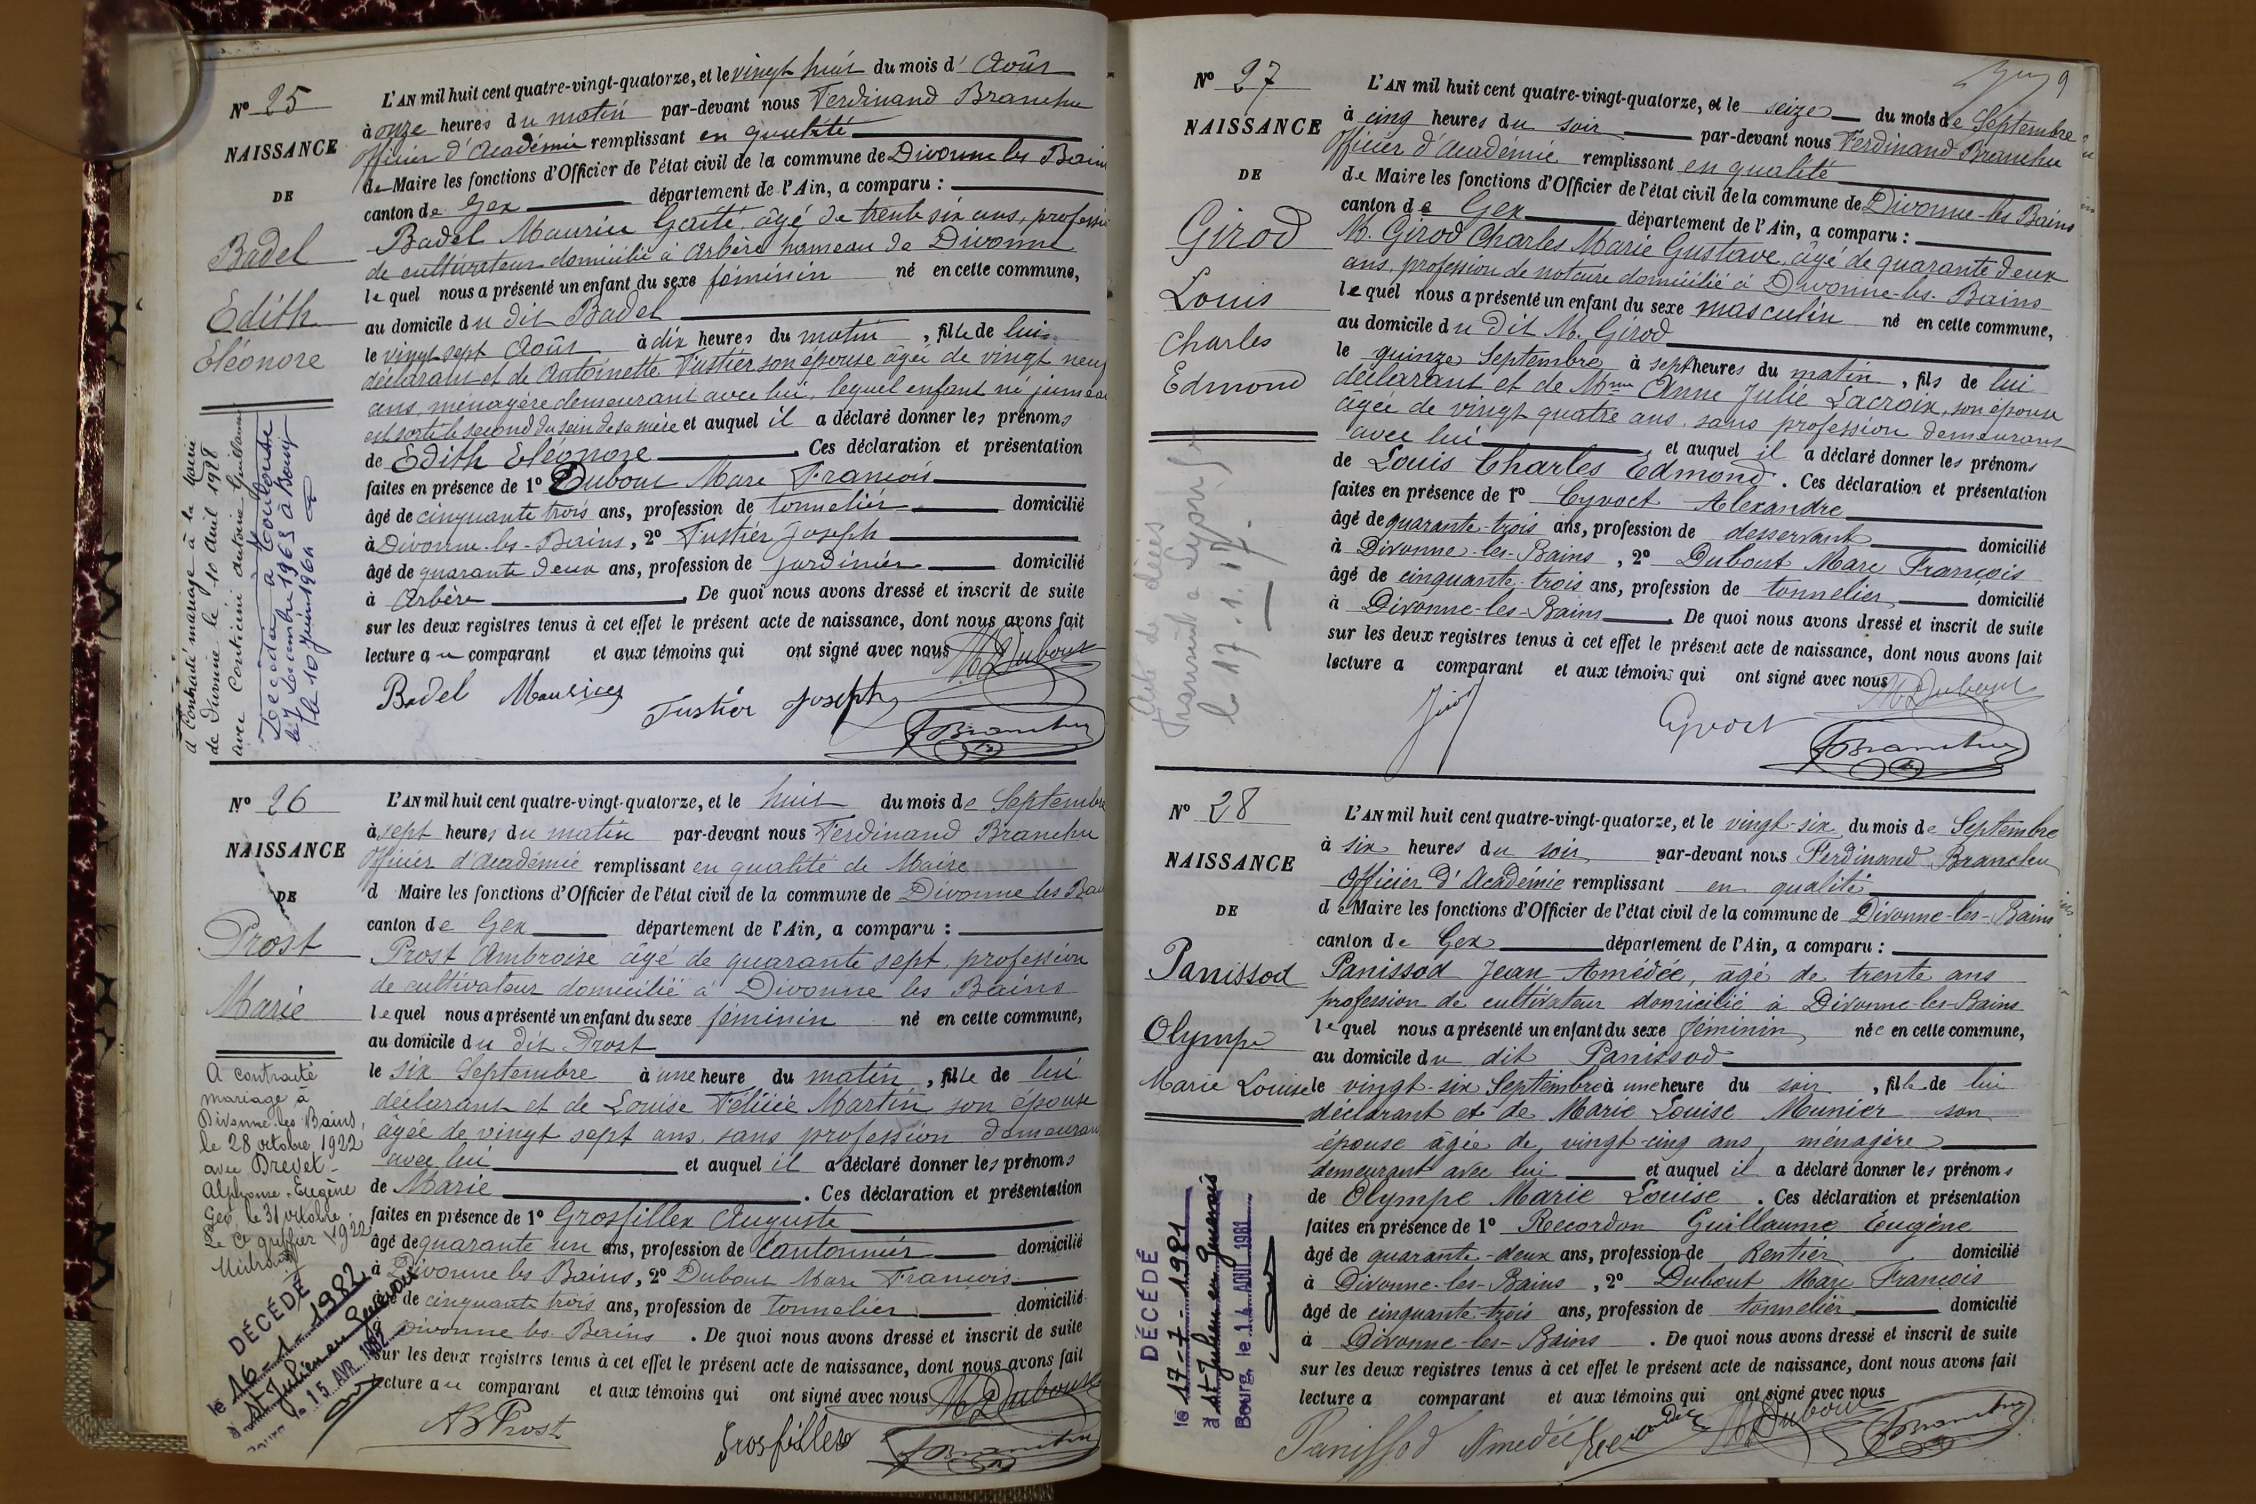 Nº 25
NAISSANCE
DE
Badel
Edith
Eléonore
L'AN mil huit cent quatre-vingt-quatorze, et le vingt huit du mois d' Août
à onze heures du matin par-devant nous Ferdinand Branchu
Officier d'Académie remplissant en qualité
de Maire les fonctions d'Officier de l'état civil de la commune de Divonne les Bains
canton de Gex département de l'Ain, a comparu :
Badel Maurice Gaité, âgé de trente six ans, professi
de cultivateur domicilié à Arbère hameau de Divonne
lequel nous a présenté un enfant du sexe féminin né en cette commune,
au domicile du dit Badel
le vingt sept Août à dix heures du matin, fille de lui
déclarant et de Antoinette Fustier son épouse âgée de vingt neuf
ans, ménagère demeurant avec lui, lequel enfant né jumeau
est sorti le second du sein de sa mère et auquel il a déclaré donner les prénoms
de Edith Eléonore. Ces déclaration et présentation
faites en présence de 1º Dubout Marc François
âgé de cinquante trois ans, profession de tonnelier domicilié
à Divonne-les-Bains, 2º Fustier Joseph
âgé de quarante deux ans, profession de jardinier domicilié
à Arbère. De quoi nous avons dressé et inscrit de suite
sur les deux registres tenus à cet effet le présent acte de naissance, dont nous avons fait
lecture au comparant et aux témoins qui ont signé avec nous
M Dubout
Badel Maurice Fustier Joseph
F Branchu
a Contracté mariage à la Mairie
de Divonne le 10 Avril 1928
avec Conticini Antoine Guillaume
Décédée à Toulouse
le 7 Décembre 1963 à Bourg
le 10 Juin 1964
Nº 26
NAISSANCE
DE
Prost
Marie
L'AN mil huit cent quatre-vingt-quatorze, et le huit du mois de Septembre
à sept heures du matin par-devant nous Ferdinand Branchu
Officier d'Académie remplissant en qualité de Maire
d Maire les fonctions d'Officier de l'état civil de la commune de Divonne les Bai
canton de Gex département de l'Ain, a comparu :
Prost Ambroise âgé de quarante sept, profession
de cultivateur domicilié à Divonne les Bains
lequel nous a présenté un enfant du sexe féminin né en cette commune,
au domicile du dit Prost
le six Septembre à une heure du matin, fille de lui
déclarant et de Louise Félicie Martin son épouse
âgée de vingt sept ans, sans profession demeurant
avec lui et auquel il a déclaré donner les prénoms
de Marie. Ces déclaration et présentation
faites en présence de 1º Grosfillex Auguste
âgé de quarante un ans, profession de cantonnier domicilié
à Divonne les Bains, 2º Dubout Marc François
âgé de cinquante trois ans, profession de tonnelier domicilié
à Divonne les Bains. De quoi nous avons dressé et inscrit de suite
sur les deux registres tenus à cet effet le présent acte de naissance, dont nous avons fait
lecture au comparant et aux témoins qui ont signé avec nous
M Dubout
A Prost Grosfillex F Branchu
A contracté
mariage à
Divonne-les-Bains,
le 28 octobre 1922
avec Bredet
Alphonse-Eugène
Gex, le 31 octobre
Le Cis greffier 1922
DÉCÉDÉ
le 16-1-1982
à St Julien en Genevois
Bourg, le 15 AVR. 1982
Nº 27
NAISSANCE
DE
Girod
Louis
Charles
Edmond
9
L'AN mil huit cent quatre-vingt-quatorze, et le seize du mois de Septembre
à cinq heures du soir par-devant nous Ferdinand Branchu
Officier d'Académie remplissant en qualité
de Maire les fonctions d'Officier de l'état civil de la commune de Divonne-les Bains
canton de Gex département de l'Ain, a comparu :
M. Girod Charles Marie Gustave, âgé de quarante deux
ans, profession de notaire domicilié à Divonne-les-Bains
lequel nous a présenté un enfant du sexe masculin né en cette commune,
au domicile du dit M. Girod
le quinze Septembre à sept heures du matin, fils de lui
déclarant et de Mme Anne Julie Lacroix, son épouse
âgée de vingt quatre ans, sans profession demeurant
avec lui et auquel il a déclaré donner les prénoms
de Louis Charles Edmond. Ces déclaration et présentation
faites en présence de 1º Cyvoct Alexandre
âgé de quarante-trois ans, profession de desservant domicilié
à Divonne-les-Bains, 2º Dubout Marc François
âgé de cinquante-trois ans, profession de tonnelier domicilié
à Divonne-les-Bains. De quoi nous avons dressé et inscrit de suite
sur les deux registres tenus à cet effet le présent acte de naissance, dont nous avons fait
lecture a comparant et aux témoins qui ont signé avec nous
M Dubout
Girod Cyvoct F Branchu
Acte de décès
transmis à Lyon
le 17.1.17.
Nº 28
NAISSANCE
DE
Panissod
Olympe
Marie Louise
L'AN mil huit cent quatre-vingt-quatorze, et le vingt-six du mois de Septembre
à six heures du soir par-devant nous Ferdinand Branchu
Officier d'Académie remplissant en qualité
de Maire les fonctions d'Officier de l'état civil de la commune de Divonne-les-Bains
canton de Gex département de l'Ain, a comparu :
Panissod Jean Amédée, âgé de trente ans
profession de cultivateur domicilié à Divonne-les-Bains
lequel nous a présenté un enfant du sexe féminin née en cette commune,
au domicile du dit Panissod
le vingt-six Septembre à une heure du soir, fille de lui
déclarant et de Marie Louise Munier son
épouse âgée de vingt-cinq ans, ménagère
demeurant avec lui et auquel il a déclaré donner les prénoms
de Olympe Marie Louise. Ces déclaration et présentation
faites en présence de 1º Recordon Guillaume Eugène
âgé de quarante-deux ans, profession de Rentier domicilié
à Divonne-les-Bains, 2º Dubout Marc François
âgé de cinquante-trois ans, profession de tonnelier domicilié
à Divonne-les-Bains. De quoi nous avons dressé et inscrit de suite
sur les deux registres tenus à cet effet le présent acte de naissance, dont nous avons fait
lecture a comparant et aux témoins qui ont signé avec nous
Panissod Amédée Recordon M Dubout F Branchu
DÉCÉDÉ
le 17-7-1981
à St Julien en Genevois
Bourg, le 14 AOUT 1981